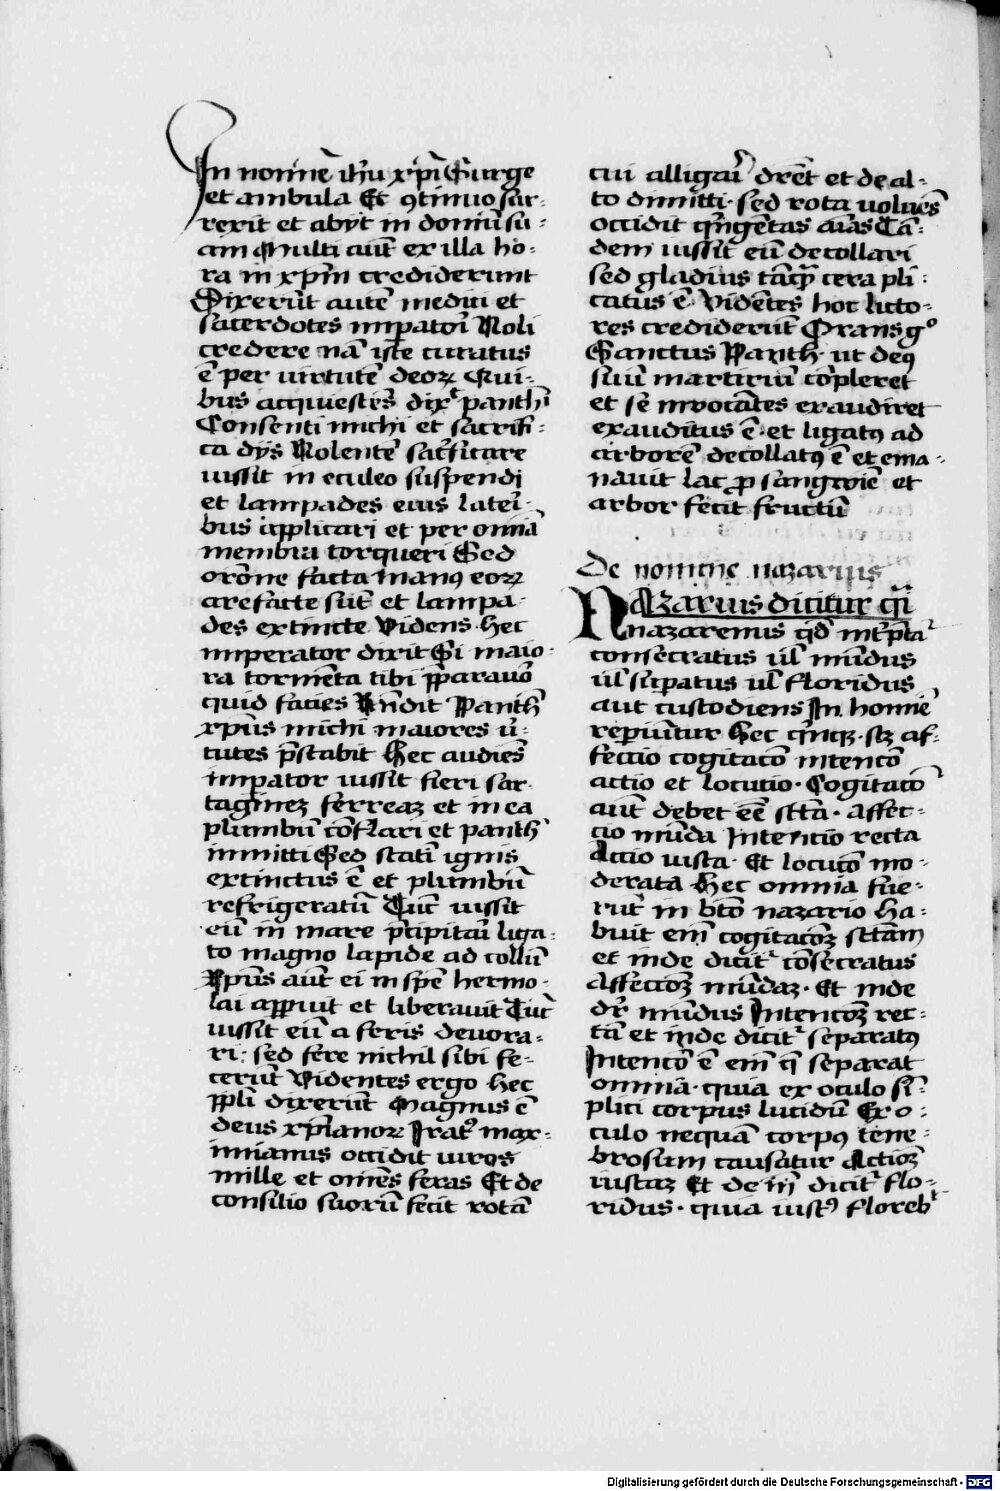 In noie͞ ih̄u xp̄i Surge
et ambula Et ꝯtinuo sur-
rexit et abyt in domū su-
am Multi aut̄ ex illa ho-
ra in xp̄m crediderunt
Dixerūt autē medici et
sacerdotes imꝑatori Noli
credere nā iste curatus
ē per virtutē deoꝝ Qui-
bus acquiescēs dixᵗ panthꝰ
Consenti michi et sacrifi-
ca dijs Nolentē sac̄ficare
iussit in eculeo suspendi
et lampades eius lateri-
bus applicari et per omnia
membra torqueri Sed
orōne facta manꝰ eoꝝ
arefacte sūt et lampa-
des extincte Videns hec
imperator dixit Si maio-
ra tormēta tibi p̄paravo͛
quid facies Rn̄dit Panth
xp̄us michi maiores v͛-
tutes p̄stabit Hec audiēs
imꝑator iussit fieri sar-
taginez ferreaz et in ea
plumbū cōflari et panth
inmitti Sed statī ignis
extinctus ē et plumbū
refrigeratū Tūc iussit
eū in mare p̄cipitari liga-
to magno lapide ad collū
Xp̄us aut̄ ei in spē hermo-
lai apparuit et liberavit Tūc
iussit eū a feris devora-
ri: sed fere nichil sibi fe-
cerūt Videntes ergo hec
ppl̄i dixerūt Magnus ē
deus xp̄ianoꝝ Iratꝰ max-
imianus occidit viros
mille et omēs feras Et de
consilio suorū fecit rotā
cui alligari͛ dr̄et et de al-
to dimitti · sed rota volvēs
occidit q̄ngētas aīas Tā-
dem iussit eū decollari
sed gladius tāq̄ cera pli-
catus ē Vidētes hoc licto-
res crediderūt Orans gͦ
Sanctus Panth · ut deꝰ
suū martiriū cōpleret
et se īvocātes exaudiret
exauditus ē · et ligatꝰ ad
arborē decollatꝰ ē et ema-
navit lac ꝓ sangwiē et
arbor fecit fructū
De nomine nazarijs
NAzarius dicitur q̄i
nazarenus qđ int̄ptaᵗ
consecratus ul̄ mūdus
ul̄ seꝑatus ul̄ floridus
aut custodiens In homīe
reperiūtur hec q̄nqꝫ · scꝫ af-
fectio cogitacō intencō
actio et locutio · Cogitacō
aut̄ debet eē scta · Affec-
cio mūda Intencio recta
Actio iusta · Et locucō mo-
derata Hec omnia fue-
rūt in bt̄o nazario Ha-
buit em̄ cogitacōꝫ sctam
et inde diciᵗ cōsecratus
Affeccōꝫ mūdaꝫ · Et inde
dr̄ mūdus Intencōꝫ rec-
tā et inde diciᵗ separatꝰ
Intencō ē em̄ q̄ separat
omnia · quia ex oculo sī-
plici corpus lucidū Ex o-
culo nequā corpꝰ tene-
brosum causatur Actioꝫ
iustaꝫ Et de ī diciᵗ flo-
ridus · quia iustꝰ florebᵗ
Digitalisierung gefördert durch die Deutsche Forschungsgemeinschaft - DFG